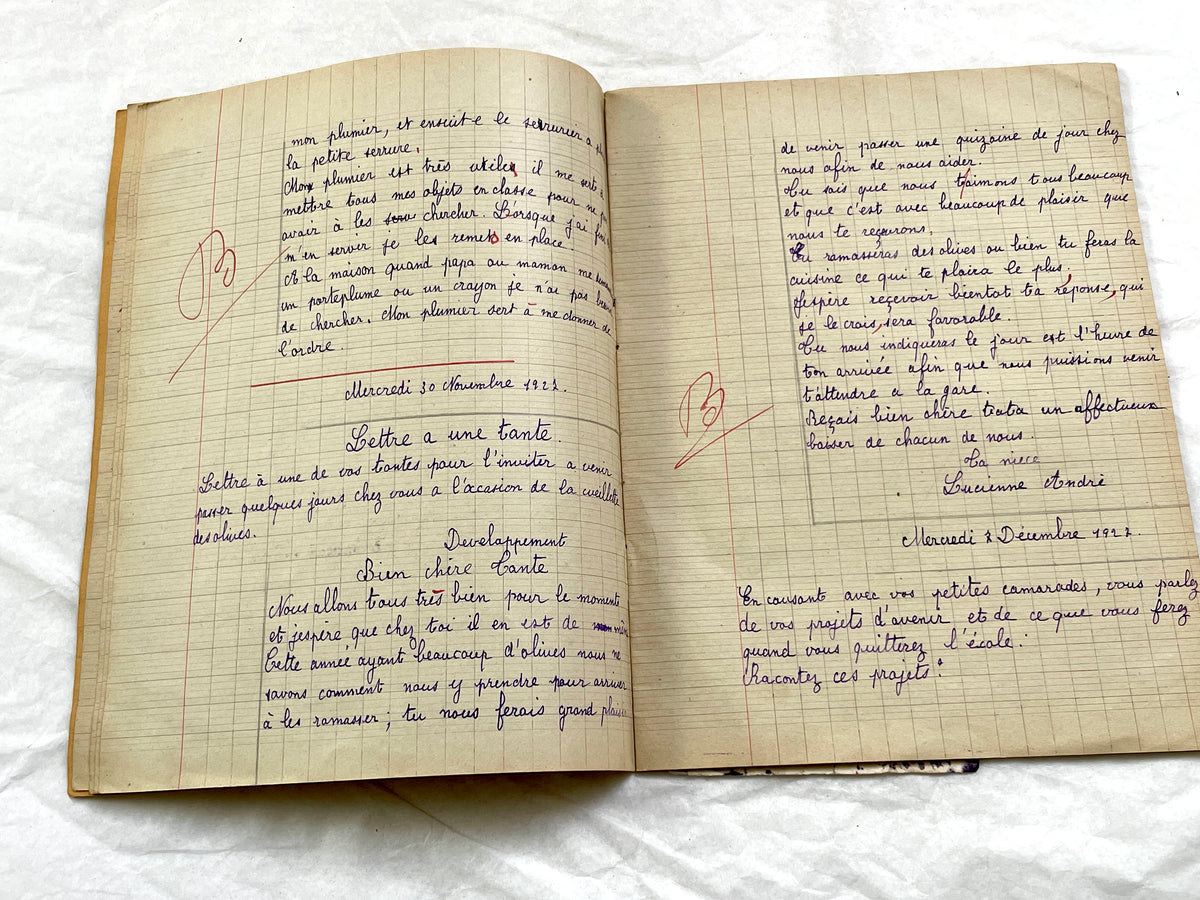 mon plumier, et ensuite le serrurier a
la petite serrure.
Mon plumier est très utile, il me sert à
mettre tous mes objets en classe pour ne
avoir à les chercher. Lorsque j'ai fini
m'en server je les remets en place.
A la maison quand papa ou maman me
un porteplume ou un crayon je n'ai pas
de chercher. Mon plumier sert à me donner de
l'ordre.
B
Mercredi 30 Novembre 1927.
Lettre a une tante.
Lettre à une de vos tantes pour l'inviter a venir
passer quelques jours chez vous a l'occasion de la cueillette
des olives.
Developpement
Bien chère Tante
Nous allons tous très bien pour le moments
et jespère que chez toi il en est de
Cette année ayant beaucoup d'olives nous ne
savons comment nous y prendre pour arriver
à les ramasser ; tu nous ferais grand plaisir
de venir passer une quizaine de jour chez
nous afin de nous aider.
Tu sais que nous t'aimons tous beaucoup
et que c'est avec beaucoup de plaisir que
nous te reçevrons.
Tu ramasseras des olives ou bien tu feras la
cuisine ce qui te plaira le plus.
J'espère reçevoir bientot ta réponse, qui
je le crois, sera favorable.
Tu nous indiqueras le jour est l'heure de
ton arrivée afin que nous puissions venir
t'attendre a la gare.
Reçois bien chère tata un affectueux
baiser de chacun de nous.
Ta niece
Lucienne André
B
Mercredi Décembre 1927.
En causant avec vos petites camarades, vous parlez
de vos projets d'avenir et de ce que vous ferez
quand vous quitterez l'école.
Racontez ces projets.